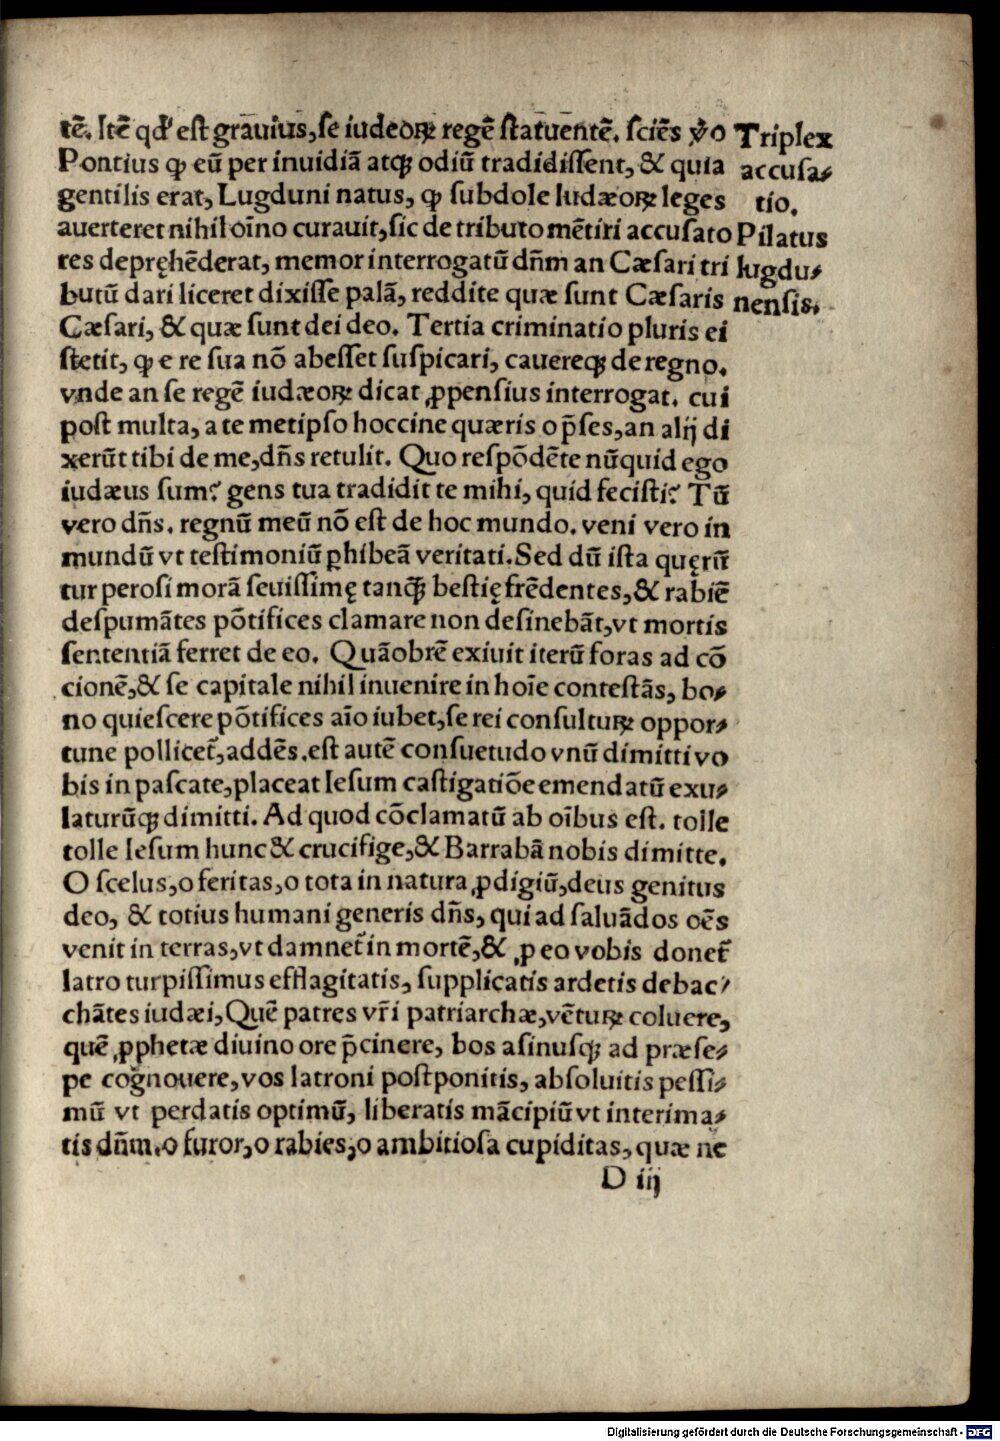 tē. Itē qđ est grauius, se iudeoꝝ regē statuentē. sciēs ꝟo
Pontius ꝙ eū per inuidiā atqꝫ odiū tradidissent, & quia
gentilis erat, Lugduni natus, ꝙ subdole Iudæoꝝ leges
auerteret nihil oīno curauit, sic de tributo mētiri accusato
res depręhēderat, memor interrogatū dn̄m an Cæsari tri
butū dari liceret dixisse palā, reddite quæ sunt Cæsaris
Cæsari, & quæ sunt dei deo. Tertia criminatio pluris ei
stetit, ꝙ e re sua nō abesset suspicari, cauereqꝫ de regno.
vnde an se regē iudæoꝝ dicat ꝓpensius interrogat. cui
post multa, a te metipso hoccine quæris o p̄ses, an alij di
xerūt tibi de me, dn̄s retulit. Quo respōdēte nūquid ego
iudæus sum? gens tua tradidit te mihi, quid fecisti? Tū
vero dn̄s. regnū meū nō est de hoc mundo. veni vero in
mundū vt testimoniū ꝑhibeā veritati. Sed dū ista quęrū
tur perosi morā seuissimę tanqꝫ bestię frēdentes, & rabiē
despumātes pōtifices clamare non desinebāt, vt mortis
sententiā ferret de eo. Quāobrē exiuit iterū foras ad cō
cionē, & se capitale nihil inuenire in hoīe contestās, bo⸗
no quiescere pōtifices aīo iubet, se rei consultuꝝ oppor⸗
tune pollicet᷑, addēs. est autē consuetudo vnū dimitti vo
bis in pascate, placeat Iesum castigatiōe emendatū exu⸗
laturūqꝫ dimitti. Ad quod cōclamatū ab oībus est. tolle
tolle Iesum hunc & crucifige, & Barrabā nobis dimitte.
O scelus, o feritas, o tota in natura ꝓdigiū, deus genitus
deo, & totius humani generis dn̄s, qui ad saluādos oēs
venit in terras, vt damnet᷑ in mortē, & ꝓ eo vobis donet᷑
latro turpissimus efflagitatis, supplicatis ardetis debac⸗
chātes iudæi, Quē patres vr̄i patriarchæ, vētuꝝ coluere,
quē ꝓphetæ diuino ore p̄cinere, bos asinusqꝫ ad præse⸗
pe cognouere, vos latroni postponitis, absoluitis pessi⸗
mū vt perdatis optimū, liberatis mācipiū vt interima⸗
tis dn̄m. o furor, o rabies, o ambitiosa cupiditas, quæ ne
D iij
Triplex
accusa⸗
tio.
Pilatus
lugdu⸗
nensis.
Digitalisierung gefördert durch die Deutsche Forschungsgemeinschaft - DFG